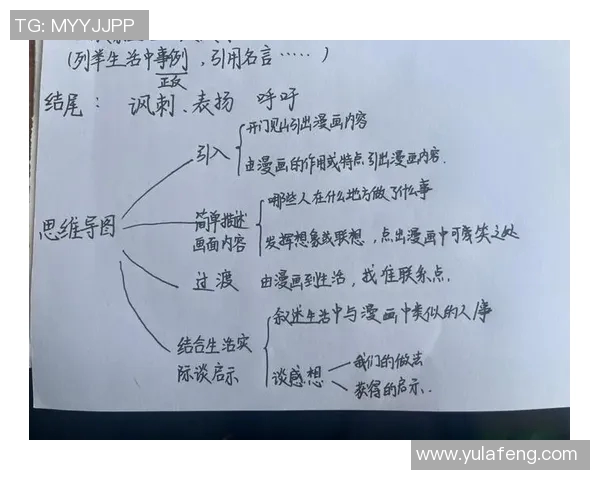 TG: MYYJJPP
(列举生活中事例,引用名言……)
正反
结尾: 讽刺、表扬 呼吁
思维导图
引入
开门见山引出漫画内容
由漫画的作用或特点引出漫画内容.
简单描述
画面内容
哪些人在什么地方做了什么事
发挥想象或联想,点出漫画中可笑之处
过渡 由漫画到生活,找准联系点.
结合生活实
际谈启示
叙述生活中与漫画中类似的人事
谈感想
我们的做法
获得的启示.
www.yulafeng.com